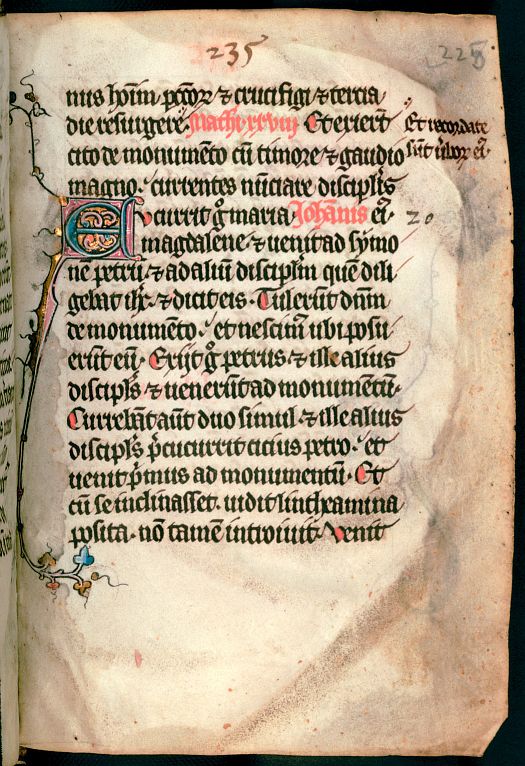 235
225
nus hoīm peccoꝝ ⁊ crucifigi ⁊ tercia
die resurgere. Mathi xxviij Et exierūt
cito de monumēto cū timore ⁊ gaudio
magno. currentes nūciare discipl̄is
Et recordate
sūt ūboꝝ ei⁹
Ecurrit g° maria Johānis ei⁹
20
magdalene ⁊ uenit ad symo
nē petrū ⁊ ad aliū discipl̄m quē dili
gebat ih̄c ⁊ dicit eis. Tulerūt dn̄m
de monumēto. et nescim⁹ ubi posu
erūt eū. Exijt g° petrus ⁊ ille alius
discipl̄s ⁊ uenerūt ad monumētū.
Currebāt aūt duo simul ⁊ ille alius
discipl̄s p̄cucurrit cicius petro. et
uenit p̄mus ad monumentū. Et
cū se inclinasset. uidit lintheamina
posita. nō tamē introiuit. Venit